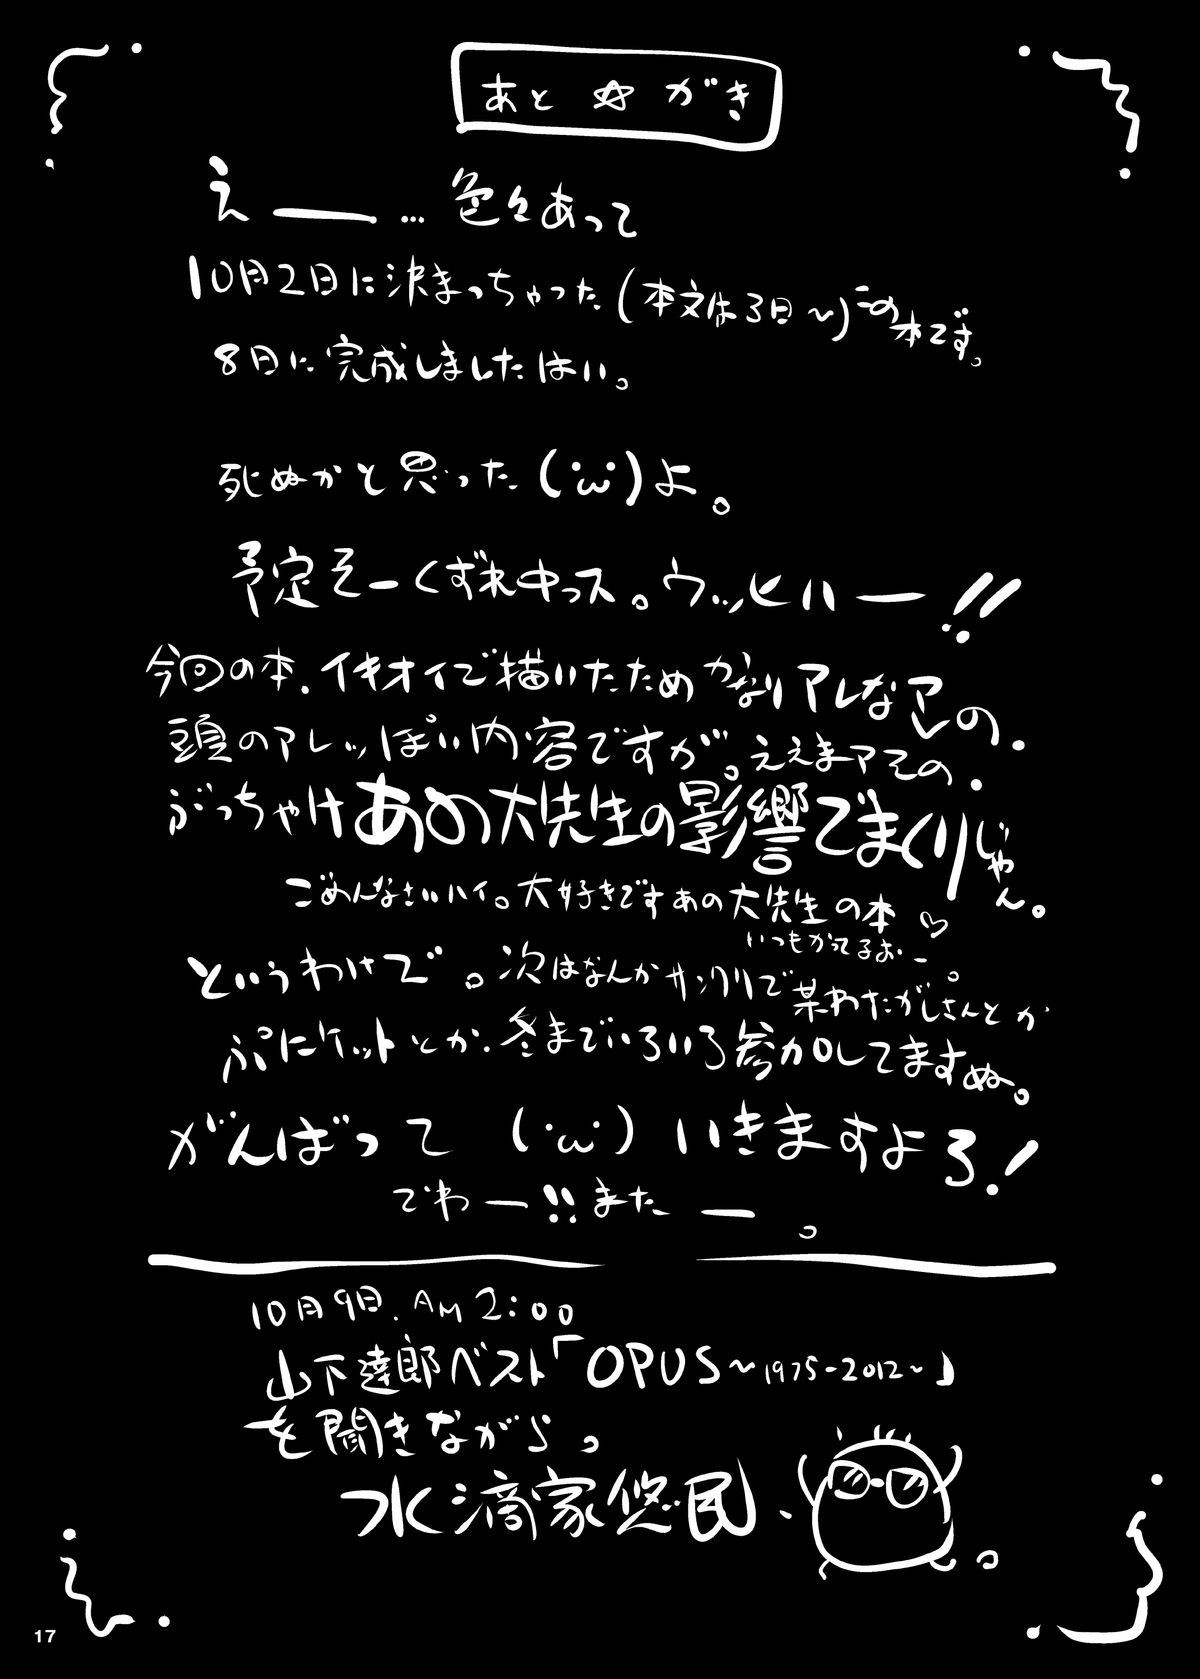 あと☆がき
えー…色々あって
10月2日に決まっちゃった(本文は3日〜)この本です。
8日に完成しましたはい。
死ぬかと思った(´ω`)よ。
予定そーくずれ中っス。ウッヒハー!!
今回の本、イキオイで描いたためかなりアレなアレの、
頭のアレッぽい内容ですが。ええまアその、
ぶっちゃけあの大先生の影響でまくりじゃん。
ごめんなさいハイ。大好きですあの大先生の本♡
いつもかってるおー
というわけで。次はなんかサンクリで某わたがしさんとか。
ぷにケットとか、冬までいろいろ参加してますぬ。
がんばって(´ω`)いきますよろ!
でわー!!またー。
10月9日、AM2:00
山下達郎ベスト「OPUS〜1975-2012〜」
を聞きながら。
水滴家悠民、
17